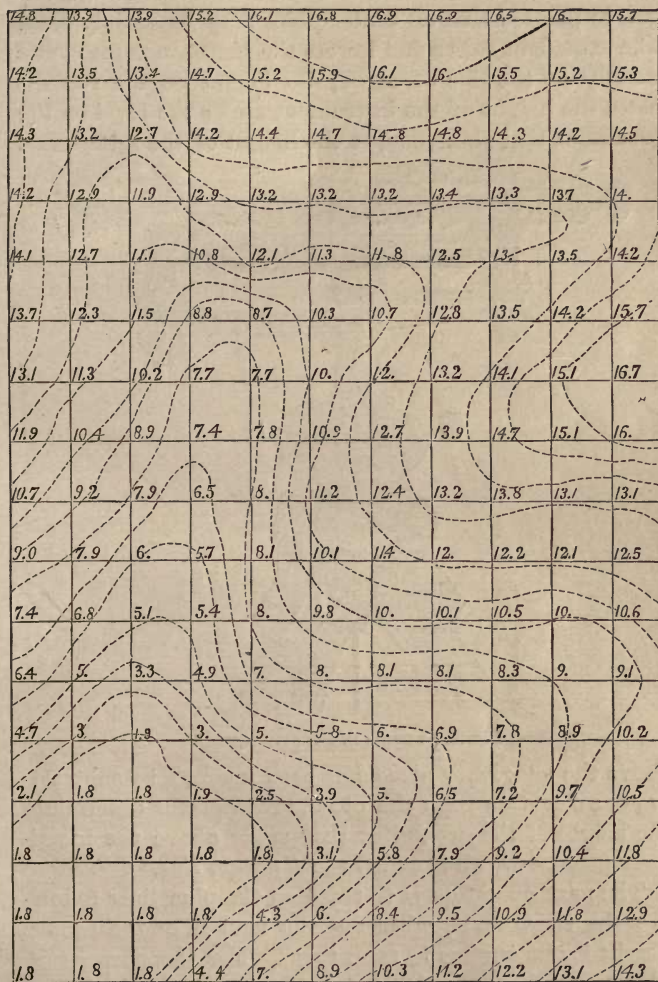 14.8 13.9 13.9 15.2 16.1 16.8 16.9 16.9 16.5 16. 15.7
14.2 13.5 13.4 14.7 15.2 15.9 16.1 16. 15.5 15.2 15.3
14.3 13.2 12.7 14.2 14.4 14.7 14.8 14.8 14.3 14.2 14.5
14.2 12.9 11.9 12.9 13.2 13.2 13.2 13.4 13.3 137 14.
14.1 12.7 11.1 10.8 12.1 11.3 11.8 12.5 13. 13.5 14.2
13.7 12.3 11.5 8.8 8.7 10.3 10.7 12.8 13.5 14.2 15.7
13.1 11.3 10.2 7.7 7.7 10. 12. 13.2 14.1 15.1 16.7
11.9 10.4 8.9 7.4 7.8 10.9 12.7 13.9 14.7 15.1 16.
10.7 9.2 7.9 6.5 8. 11.2 12.4 13.2 13.8 13.1 13.1
9.0 7.9 6. 5.7 8.1 10.1 11.4 12. 12.2 12.1 12.5
7.4 6.8 5.1 5.4 8. 9.8 10. 10.1 10.5 10. 10.6
6.4 5. 3.3 4.9 7. 8. 8.1 8.1 8.3 9. 9.1
4.7 3. 1.9 3. 5. 5.8 6. 6.9 7.8 8.9 10.2
2.1 1.8 1.8 1.9 2.5 3.9 5. 6.5 7.2 9.7 10.5
1.8 1.8 1.8 1.8 1.8 3.1 5.8 7.9 9.2 10.4 11.8
1.8 1.8 1.8 1.8 4.3 6. 8.4 9.5 10.9 11.8 12.9
1.8 1.8 1.8 4.4 7. 8.9 10.3 11.2 12.2 13.1 14.3